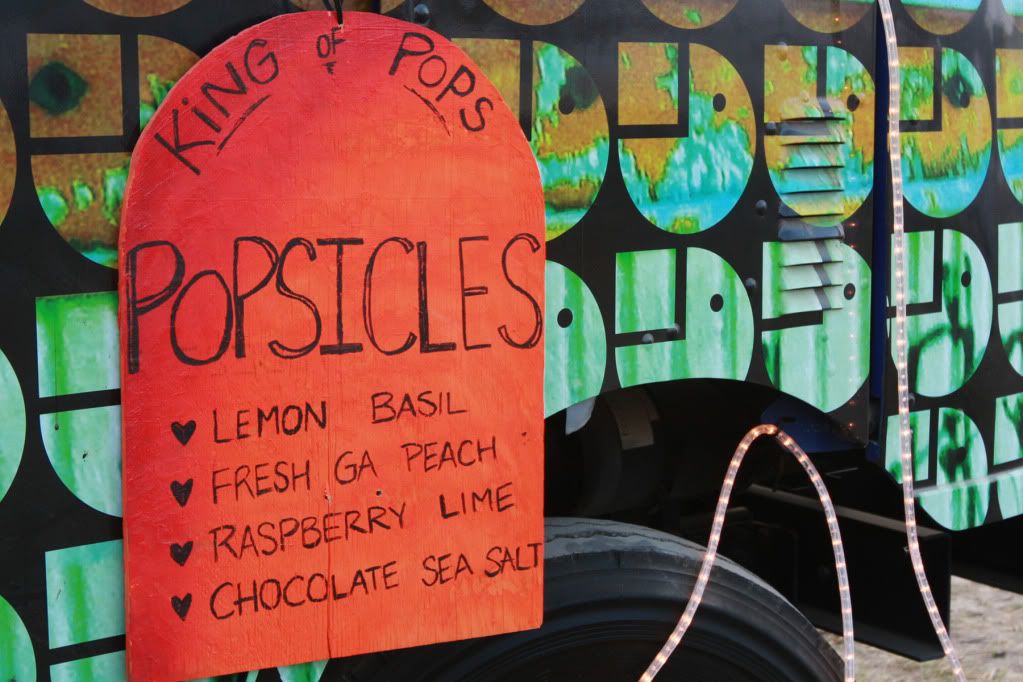 KiNG OF POPS
POPSICLES
LEMON BASIL
FRESH GA PEACH
RASPBERRY LIME
CHOCOLATE SEA SALT